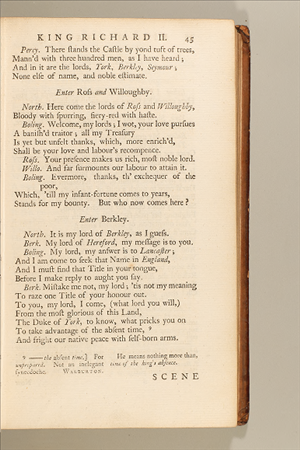 KING RICHARD II. 45
Percy. There ſtands the Caſtle by yond tuft of trees,
Mann'd with three hundred men, as I have heard;
And in it are the lords, York, Berkley, Seymour;
None elſe of name, and noble eſtimate.
Enter Roſs and Willoughby.
North. Here come the lords of Roſs and Willoughby,
Bloody with ſpurring, fiery-red with haſte.
Boling. Welcome, my lords; I wot, your love purſues
A baniſh'd traitor; all my Treaſury
Is yet but unfelt thanks, which, more enrich'd,
Shall be your love and labour's recompence.
Roſs. Your preſence makes us rich, moſt noble lord.
Willo. And far ſurmounts our labour to attain it.
Boling. Evermore, thanks, th' exchequer of the
poor,
Which, 'till my infant-fortune comes to years,
Stands for my bounty. But who now comes here?
Enter Berkley.
North. It is my lord of Berkley, as I gueſs.
Berk. My lord of Hereford, my meſſage is to you.
Boling. My lord, my anſwer is to Lancaſter;
And I am come to ſeek that Name in England,
And I muſt find that Title in your tongue,
Before I make reply to aught you ſay.
Berk. Miſtake me not, my lord; 'tis not my meaning
To raze one Title of your honour out.
To you, my lord, I come, (what lord you will,)
From the moſt glorious of this Land,
The Duke of York, to know, what pricks you on
To take advantage of the abſent time, 9
And fright our native peace with ſelf-born arms.
9 —the abſent time.] For
unprepared. Not an inelegant
ſynecdoche. WARBURTON.
He means nothing more than,
time of the king's abſence.
SCENE